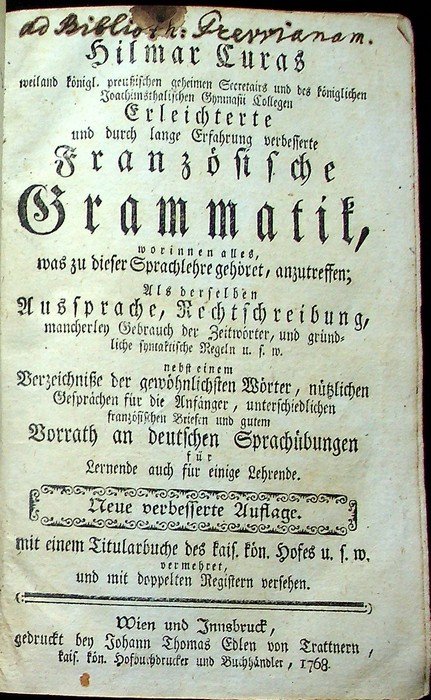 ad Biblioth: Frerrianam.
Hilmar Curas
weiland königl. preußischen geheimen Secretairs und des königlichen
Joachimsthalischen Gymnasii Collegen
Erleichterte
und durch lange Erfahrung verbesserte
Französische
Grammatik,
worinnen alles,
was zu dieser Sprachlehre gehöret, anzutreffen;
Als derselben
Aussprache, Rechtschreibung,
mancherley Gebrauch der Zeitwörter, und gründ-
liche syntaktische Regeln u. s. w.
nebst einem
Verzeichniße der gewöhnlichsten Wörter, nützlichen
Gesprächen für die Anfänger, unterschiedlichen
französischen Briefen und gutem
Vorrath an deutschen Sprachübungen
für
Lernende auch für einige Lehrende.
Neue verbesserte Auflage.
mit einem Titularbuche des kais. kön. Hofes u. s. w.
vermehret,
und mit doppelten Registern versehen.
Wien und Innsbruck,
gedruckt bey Johann Thomas Edlen von Trattnern,
kais. kön. Hofbuchdrucker und Buchhändler, 1768.